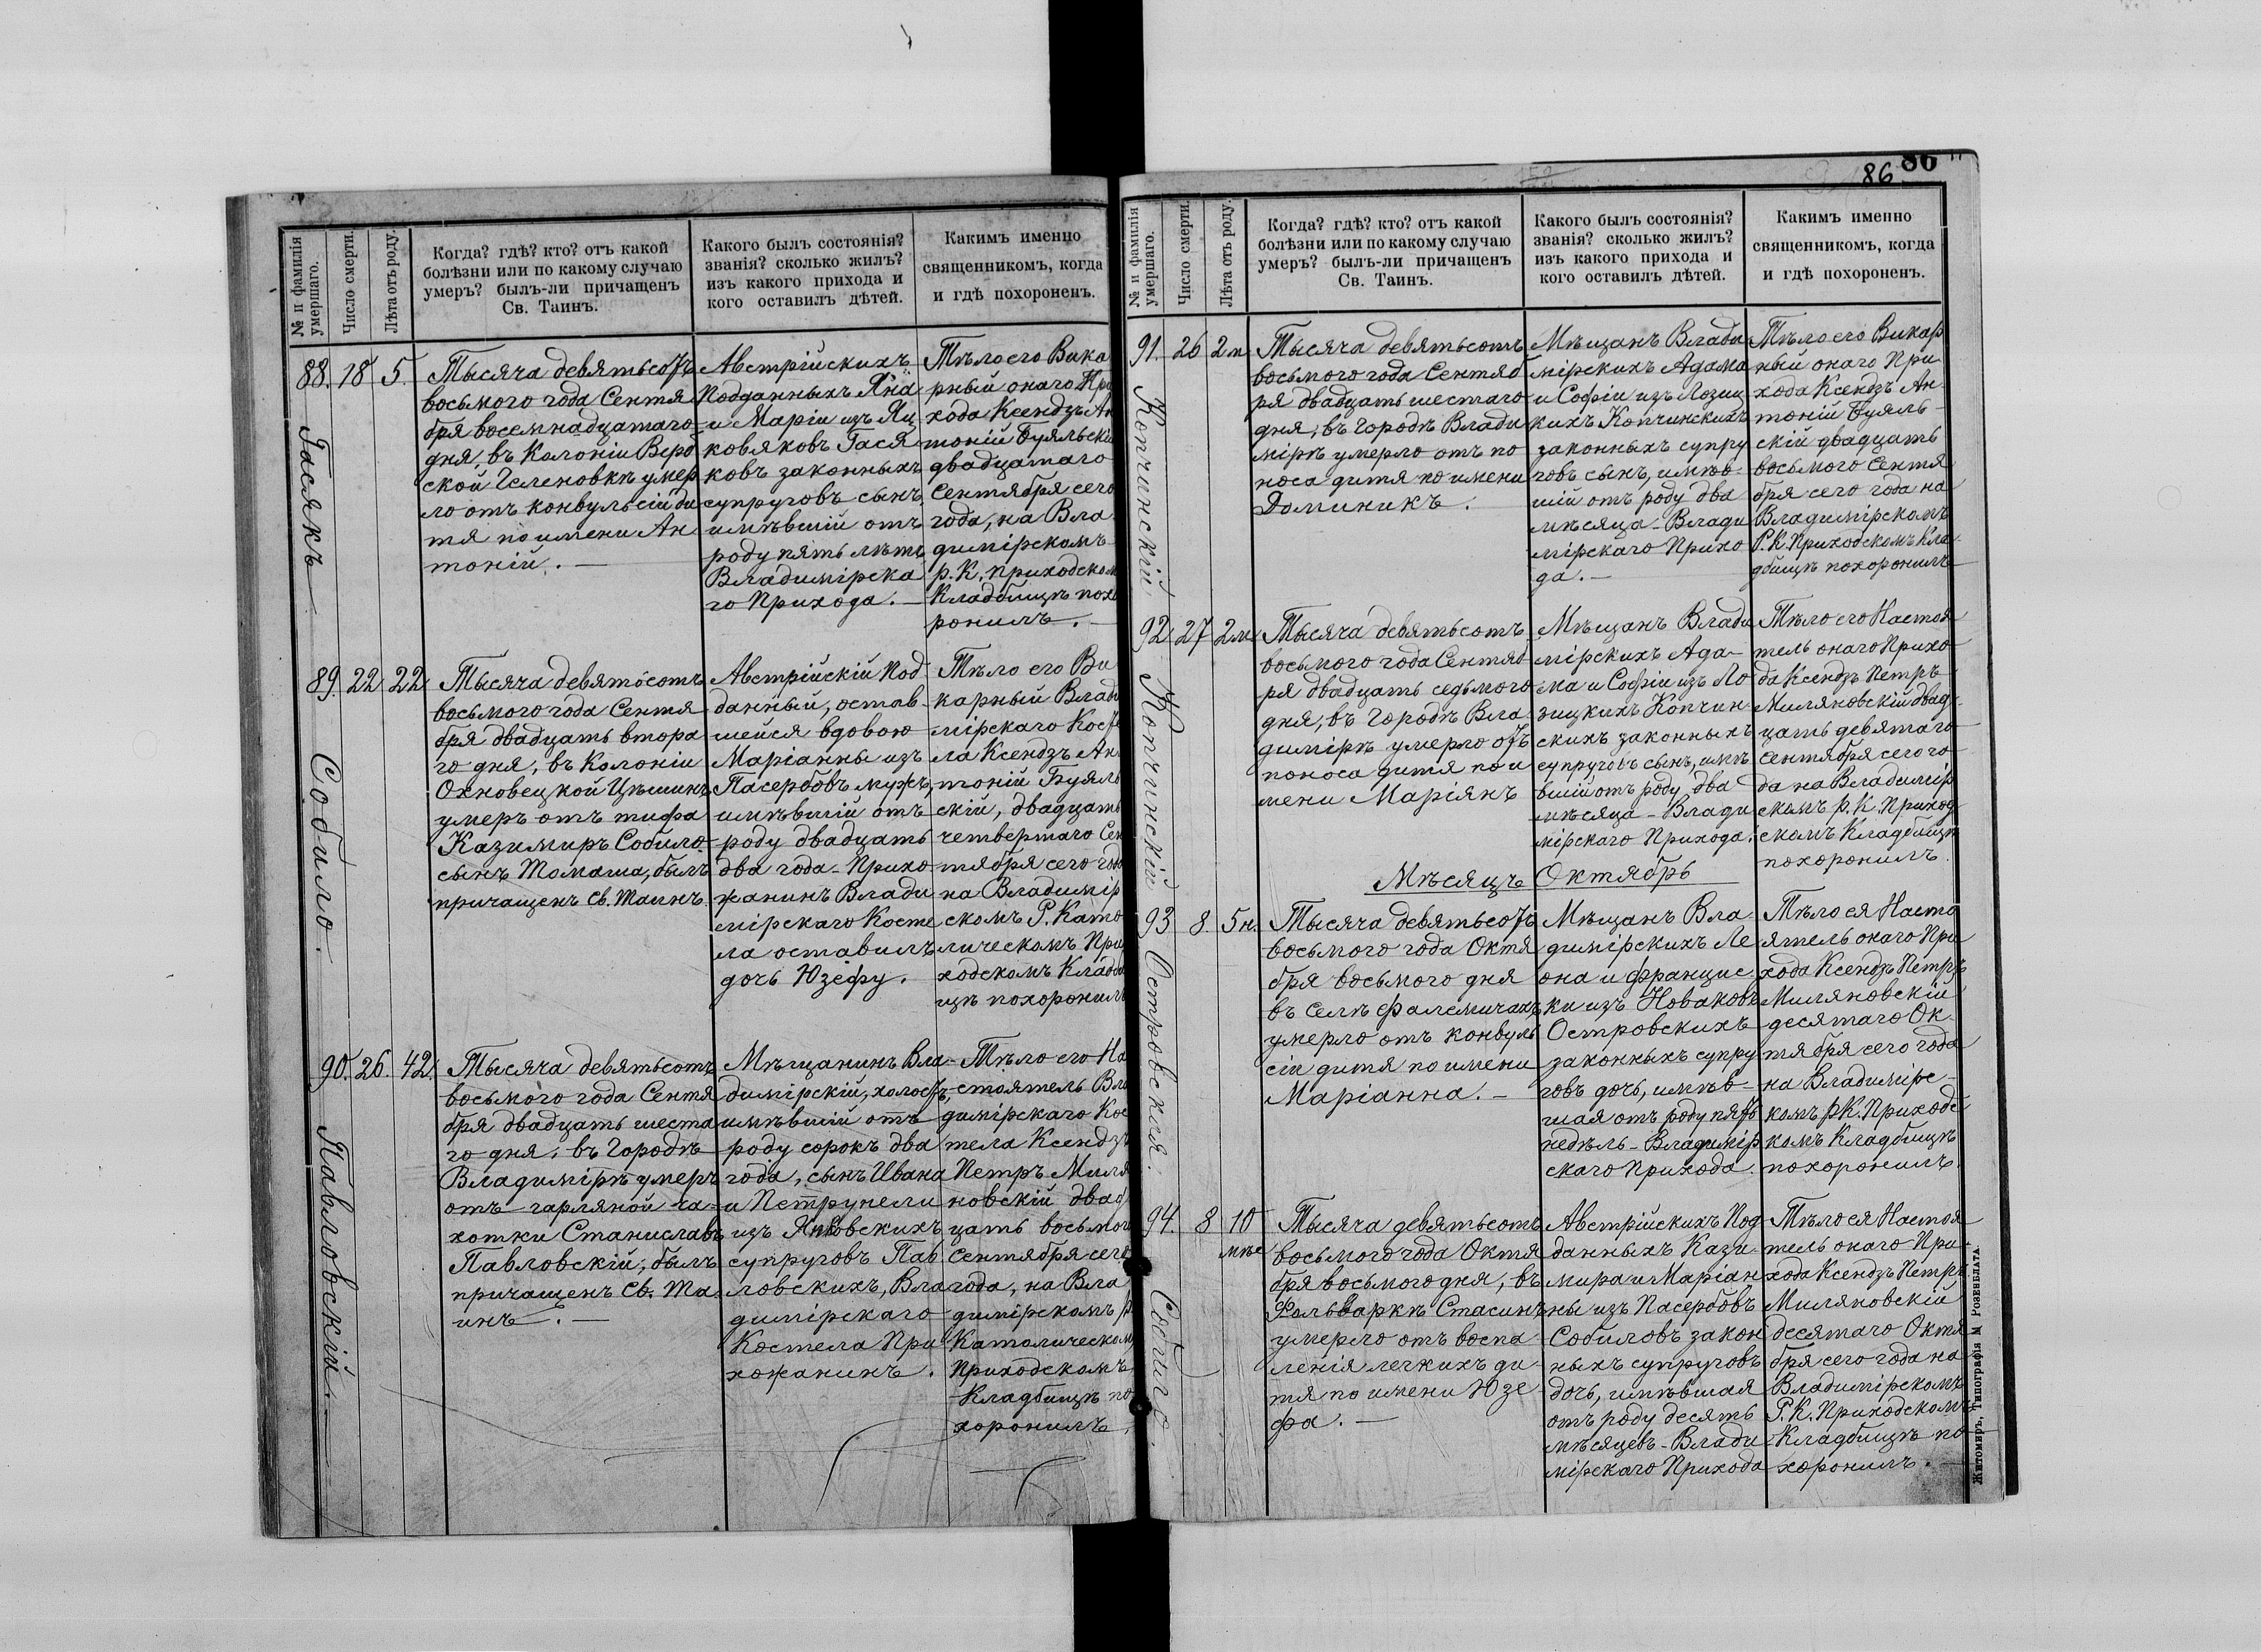 № и фамилія умершаго.
Число смерти.
Лѣта отъ роду.
Когда? гдѣ? кто? отъ какой
болѣзни или по какому случаю
умеръ? былъ-ли причащенъ
Св. Таинъ.
Какого былъ состоянія?
званія? сколько жилъ?
изъ какого прихода и
кого оставилъ дѣтей.
Какимъ именно
священникомъ, когда
и гдѣ похороненъ.
88. 18 5.
Гасякъ
Тысяча девятьсотъ
восьмого года Сентя
бря восемнадцатаго
дня, въ Колоніи Верб
ской Геленовкѣ умер
ло отъ конвульсій ди
тя по имени Ан
тоній. —
Австрійскихъ
Подданныхъ Яна
и Маріи изъ Яц
ковяковъ Гася
ковъ законныхъ
супруговъ сынъ
имѣвшій отъ
роду пять лѣтъ
Владимірска
го Прихода. —
Тѣло его Вика
рный онаго При
хода Ксендзъ Ан
тоній Буяльскій
двадцатаго
Сентября сего
года, на Вла
димірскомъ
р. К. приходском
Кладбищѣ похо
ронилъ. —
89. 22 22
Собило.
Тысяча девятьсотъ
восьмого года Сентя
бря двадцать втора
го дня, въ Колоніи
Охновецкой Цѣшинъ
умеръ отъ тифа
Казимиръ Собило
сынъ Томаша, былъ
причащенъ Св. Таинъ.
Австрійскій Под
данный, остав
шейся вдовою
Маріанны изъ
Пасербовъ мужъ,
имѣвшій отъ
роду двадцать
два года - Прихо
жанинъ Влади
мірскаго Косте
ла оставилъ
дочь Юзефу.
Тѣло его Ви
карный Влади
мірскаго Косте
ла Ксендзъ Ан
тоній Буяль
скій, двадцать
четвертаго Сен
тября сего года
на Владимір
скомъ Р. Като
лическомъ При
ходскомъ Кладби
щѣ похоронилъ
90. 26. 42.
Павловскій.
Тысяча девятьсотъ
восьмого года Сентя
бря двадцать шеста
го дня, въ Городѣ
Владимірѣ умеръ
отъ гарляной ча
хотки Станиславъ
Павловскій, былъ
причащенъ Св. Та
инъ. —
Мѣщанинъ Вла
димірскій, холостъ,
имѣвшій отъ
роду сорокъ два
года, сынъ Ивана
и Петрунели
изъ Янковскихъ
супруговъ Пав
ловскихъ, Вла
димірскаго
Костела При
хожанинъ.
Тѣло его На
стоятель Вла
димірскаго Кос
тела Ксендзъ
Петръ Миля
новскій двад
цать восьмого
Сентября сего
года, на Вла
димірскомъ р
Католическомъ
Приходскомъ
Кладбищѣ по
хоронилъ.
86 86
№ и фамилія умершаго.
Число смерти.
Лѣта отъ роду.
Когда? гдѣ? кто? отъ какой
болѣзни или по какому случаю
умеръ? былъ-ли причащенъ
Св. Таинъ.
Какого былъ состоянія?
званія? сколько жилъ?
изъ какого прихода и
кого оставилъ дѣтей.
Какимъ именно
священникомъ, когда
и гдѣ похороненъ.
91. 26 2 м
Копчинскій
Тысяча девятьсотъ
восьмого года Сентяб
ря двадцать шестаго
дня, въ Городѣ Влади
мірѣ умерло отъ по
носа дитя по имени
Доминикъ.
Мѣщанъ Влади
мірскихъ Адама
и Софіи изъ Лозиц
кихъ Копчинскихъ
законныхъ супру
говъ сынъ, имѣв
шій отъ роду два
мѣсяца - Влади
мірскаго Прихо
да. —
Тѣло его Викар
ный онаго При
хода Ксендзъ Ан
тоній Буяль
скій двадцать
восьмого Сентя
бря сего года на
Владимірскомъ
Р. К. Приходскомъ Кла
дбищѣ похоронилъ
92 27 2 м
Копчинскій
Тысяча девятьсотъ
восьмого года Сентяб
ря двадцать седьмого
дня, въ Городѣ Вла
димірѣ умерло отъ
поноса дитя по и
мени Маріянъ
Мѣщанъ Влади
мірскихъ Ада
ма и Софіи изъ Ло
зицкихъ Копчин
скихъ законныхъ
супруговъ сынъ, имѣ
вшій отъ роду два
мѣсяца - Влади
мірскаго Прихода.
Тѣло его Настоя
тель онаго Прихо
да Ксендзъ Петръ
Миляновскій двад
цать девятаго
Сентября сего го
да на Владимір
скомъ р. К. Приход
скомъ Кладбищѣ
похоронилъ.
Мѣсяцъ Октябрь
93 8. 5 н.
Островская.
Тысяча девятьсотъ
восьмого года Октя
бря восьмого дня
въ селѣ Фалемичахъ
умерло отъ конвуль
сіи дитя по имени
Маріанна. —
Мѣщанъ Вла
димірскихъ Ле
она и Францис
ки изъ Новаковъ
Островскихъ
законныхъ супру
говъ дочь, имѣв
шая отъ роду пять
недѣль - Владимір
скаго Прихода.
Тѣло ея Насто
ятель онаго При
хода Ксендзъ Петръ
Миляновскій
десятаго Ок
тября сего года
на Владимірс
комъ р К. Приходс
комъ Кладбищѣ
похоронилъ.
94. 8 10
мѣс
Собило.
Тысяча девятьсотъ
восьмого года Октя
бря восьмого дня, въ
Фольваркѣ Стасинъ
умерло отъ воспа
ленія легкихъ ди
тя по имени Юзе
фа. —
Австрійскихъ Под
данныхъ Кази
мира и Маріан
ны изъ Пасербовъ
Собиловъ закон
ныхъ супруговъ
дочь, имѣвшая
отъ роду десять
мѣсяцевъ - Влади
мірскаго Прихода
Тѣло ея Настоя
тель онаго При
хода Ксендзъ Петръ
Миляновскій
десятаго Октя
бря сего года на
Владимірскомъ
Р. К. Приходскомъ
Кладбищѣ по
хоронилъ. —
Житомиръ, Типографія М. Розенблата.